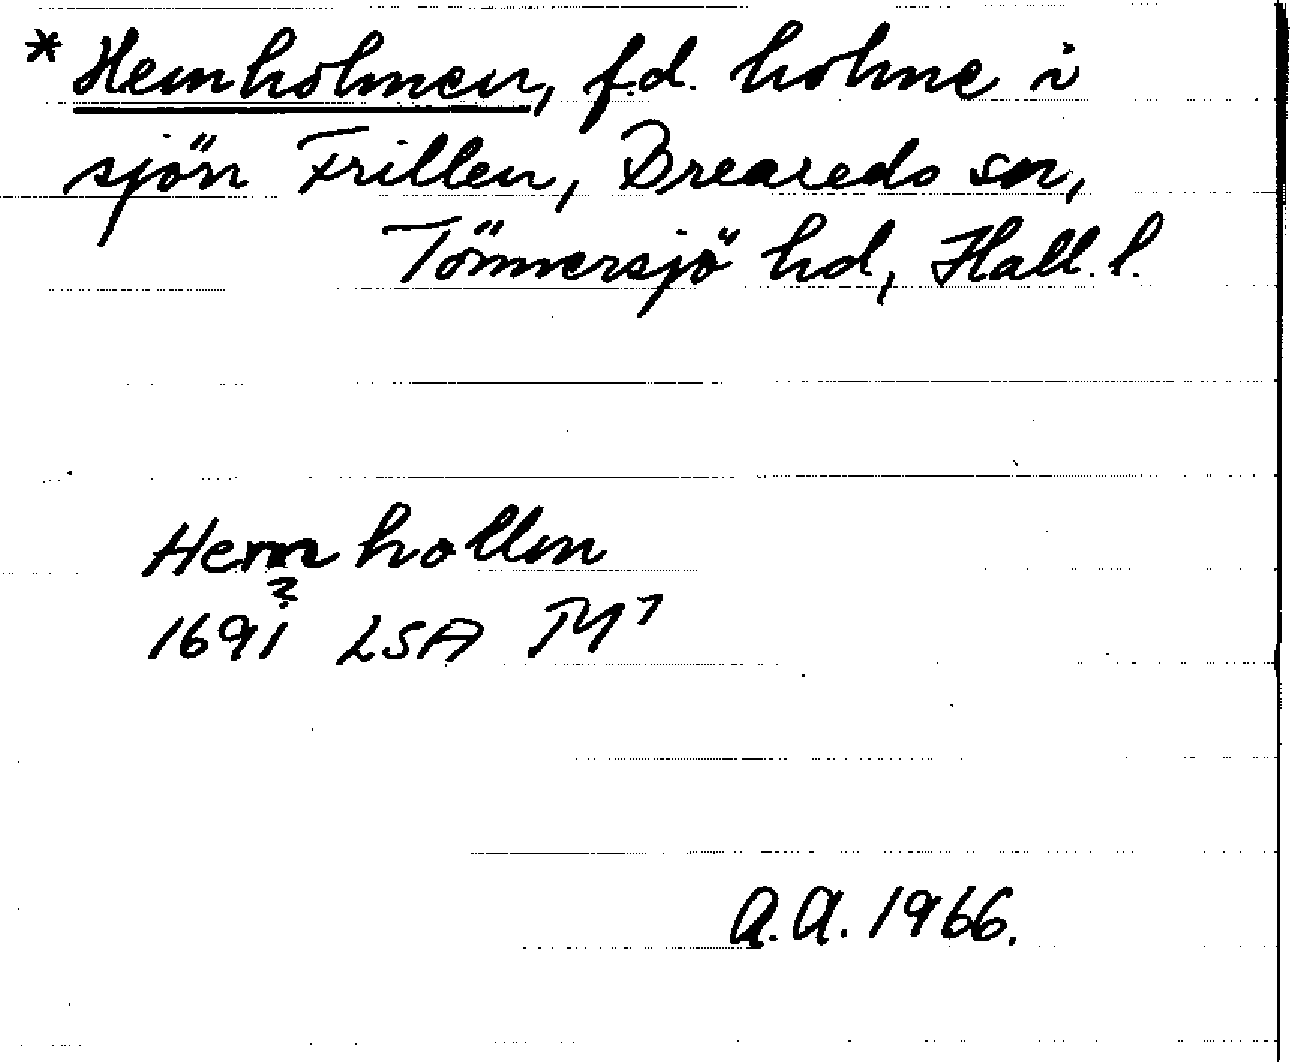 * Hemholmen, f.d. holme i
sjön Frillen, Breareds sn,
Tönnersjö hd, Hall. l.
Hem hollm
?
1691 LSA M7
A.A. 1966.